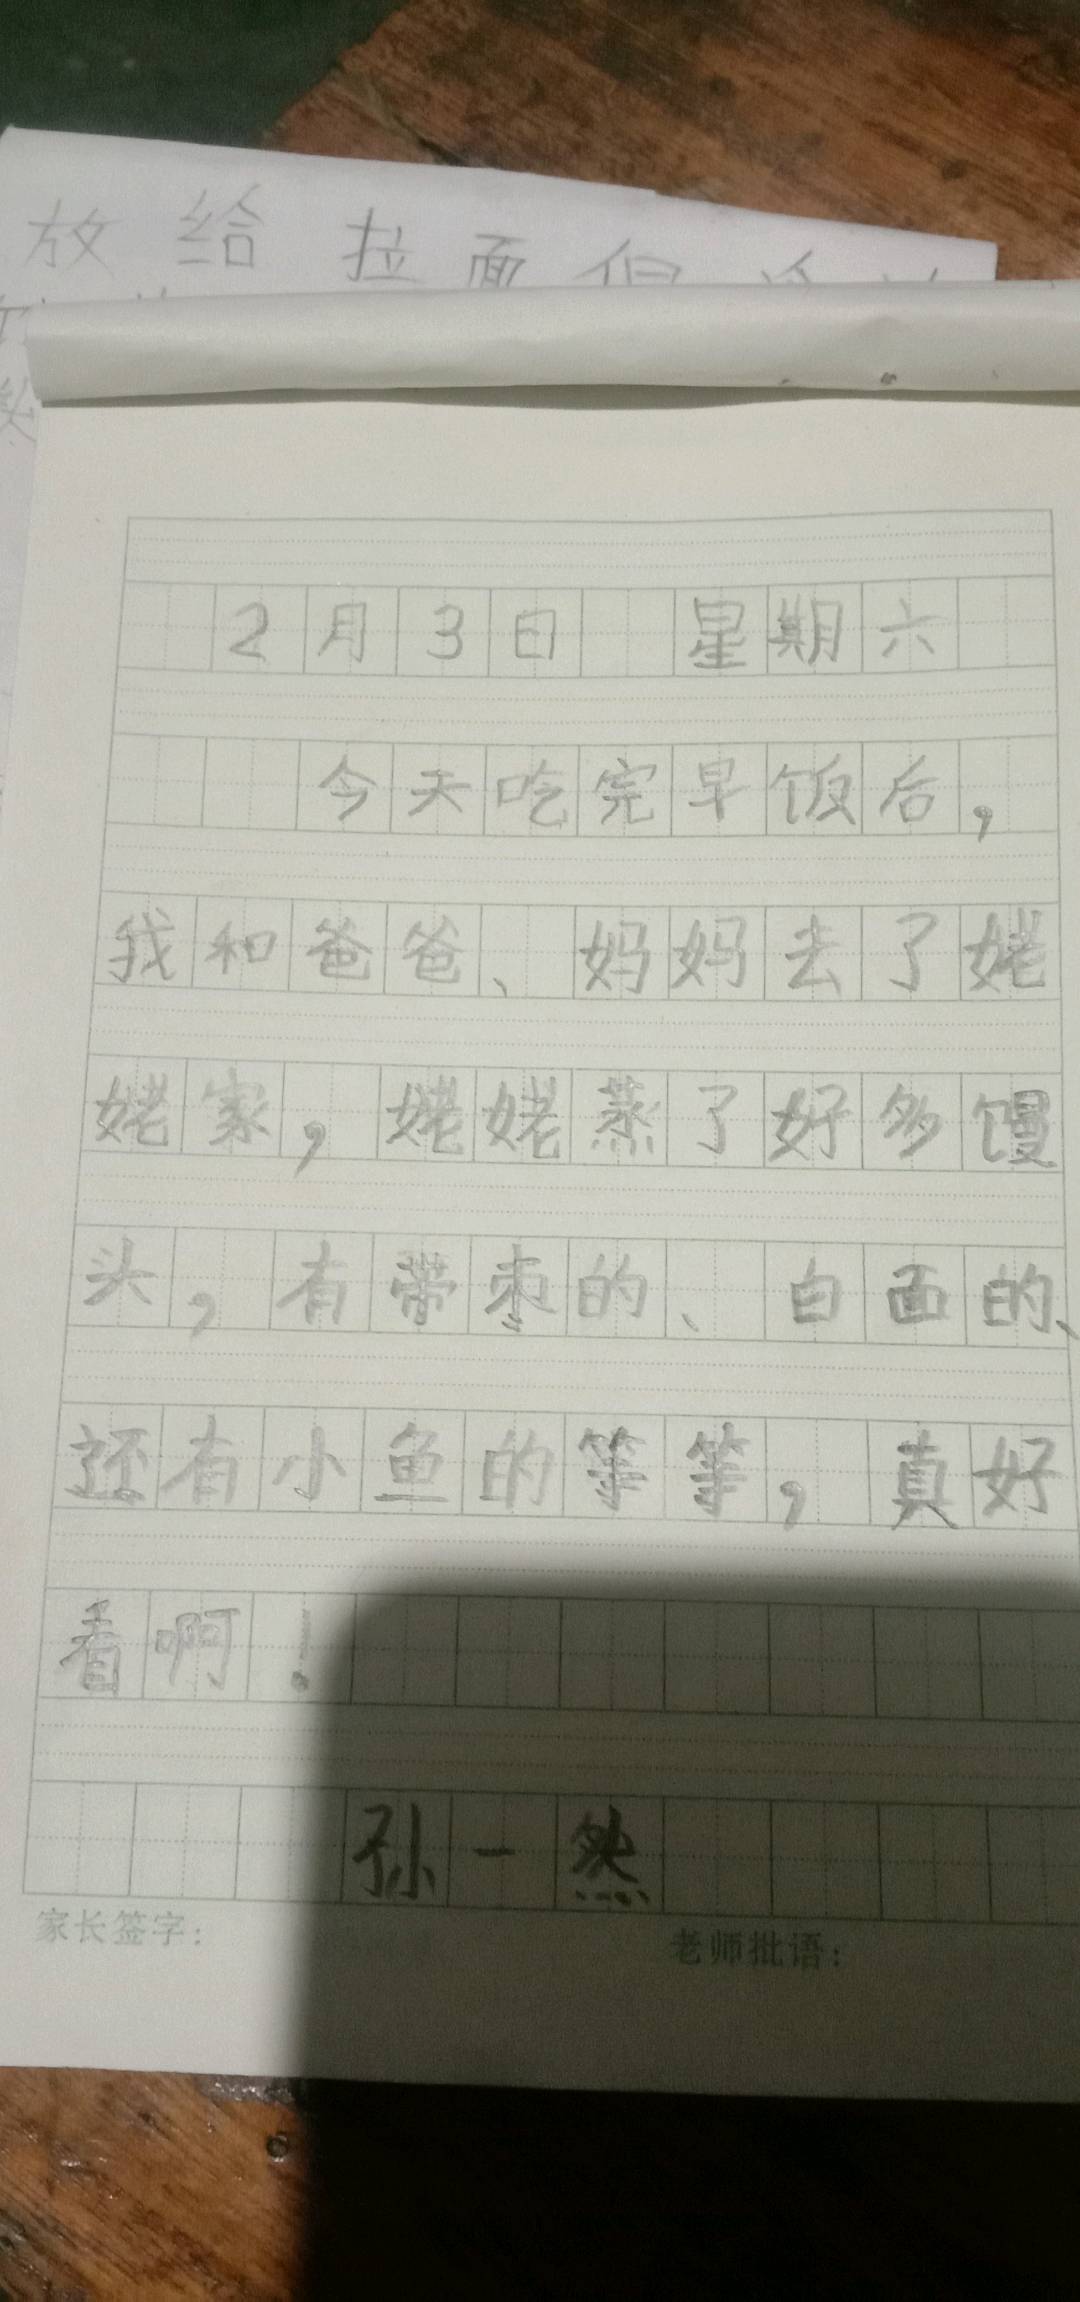 放给拉面
头
2月3日 星期六
今天吃完早饭后，
我和爸爸、妈妈去了姥
姥家，姥姥蒸了好多馒
头，有带枣的、白面的、
还有小鱼的等等，真好
看啊！
孙一然
家长签字：
老师批语：